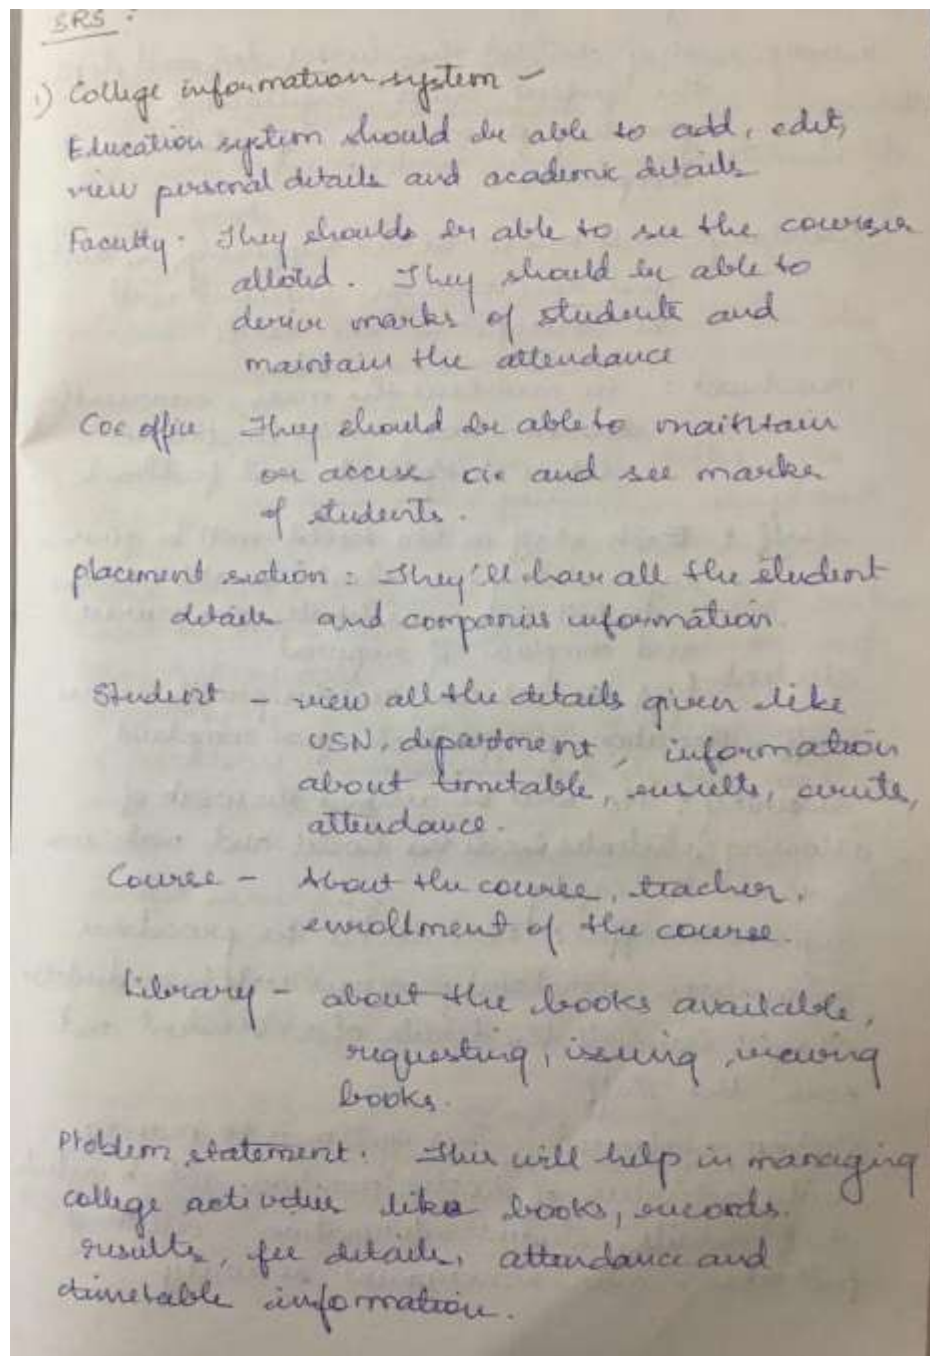 SRS :
1) College information system -
Education system should be able to add, edit,
view personal details and academic details
Faculty - They should be able to see the courses
alloted. They should be able to
derive marks of students and
maintain the attendance
Coe office They should be able to maintain
or access cie and see marks
of students.
placement section : They'll have all the student
details and companies information.
Student - view all the details given like
USN, department, information
about timetable, results, events,
attendance.
Course - About the course, teacher,
enrollment of the course.
Library - about the books available,
requesting, issuing, viewing
books.
Problem statement. This will help in managing
college activities like books, records.
results, fee details, attendance and
timetable information.